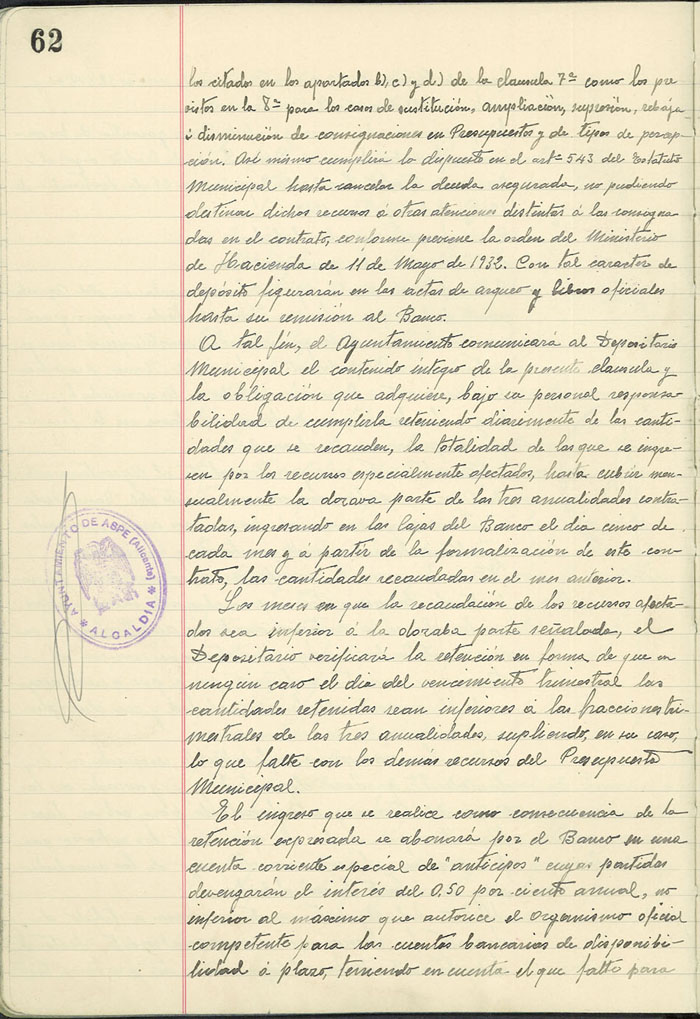 62
los citados en los apartados b), c) y d) de la clausula 7ª como los pre
vistos en la 8ª para los casos de sustitución, ampliación, supresión, rebaja
ó disminución de consignaciones en Presupuestos y de tipos de percep
ción. Asi mismo cumplirá lo dispuesto en el artº 543 del Estatuto
Municipal hasta cancelar la deuda asegurada, no pudiendo
destinar dichos recursos á otras atenciones distintas á las consigna
das en el contrato, conforme previene la orden del Ministerio
de Hacienda de 11 de Mayo de 1932. Con tal caracter de
depósito figurarán en las actas de arqueo y libros oficiales
hasta su remisión al Banco.
A tal fin, el Ayuntamiento comunicará al Depositario
Municipal el contenido integro de la presente clausula y
la obligación que adquiere, bajo su personal responsa
bilidad de cumplirla reteniendo diariamente de las canti-
dades que se recauden, la totalidad de las que se ingre-
sen por los recursos especialmente afectados, hasta cubrir men-
sualmente la dozava parte de las tres anualidades contra-
tadas, ingresando en las Cajas del Banco el dia cinco de
cada mes y á partir de la formalización de este con-
trato, las cantidades recaudadas en el mes anterior.
Los meses en que la recaudación de los recursos afecta-
dos sea inferior á la dozaba parte señalada, el
Depositario verificará la retención en forma de que en
ningún caso el dia del vencimiento trimestral las
cantidades retenidas sean inferiores á las fracciones tri-
mestrales de las tres anualidades, supliendo, en su caso,
lo que falte con los demás recursos del Presupuesto
Municipal.
El ingreso que se realice como consecuencia de la
retención expresada se abonará por el Banco en una
cuenta corriente especial de "anticipos" cuyas partidas
devengarán el interés del 0,50 por ciento anual, no
inferior al máximo que autorice el Organismo oficial
competente para las cuentas bancarias de disponibi-
lidad á plazo, teniendo en cuenta el que falte para
AYUNTAMIENTO DE ASPE (Alicante)
* ALCALDIA *